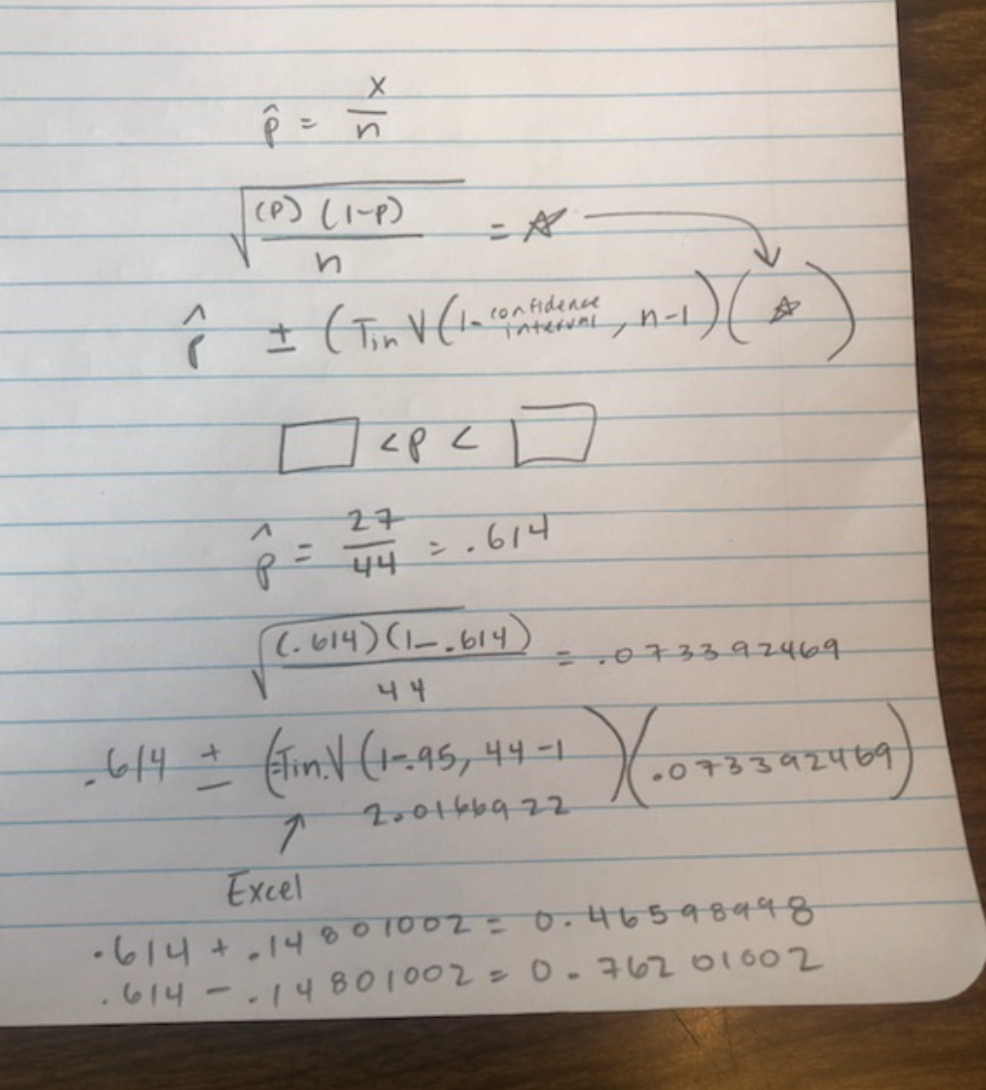 p̂ = x/n
√((p)(1-p)/n) = ☆
p̂ ± (Tinv(1-confidence interval, n-1)(☆)
□ < p < □
p̂ = 27/44 = .614
√((.614)(1-.614)/44) = .073392469
.614 ± (=Tinv(1-.95, 44-1)(.073392469)
↑ 2.0166922
Excel
.614 + .14801002 = 0.46598998
.614 - .14801002 = 0.76201002